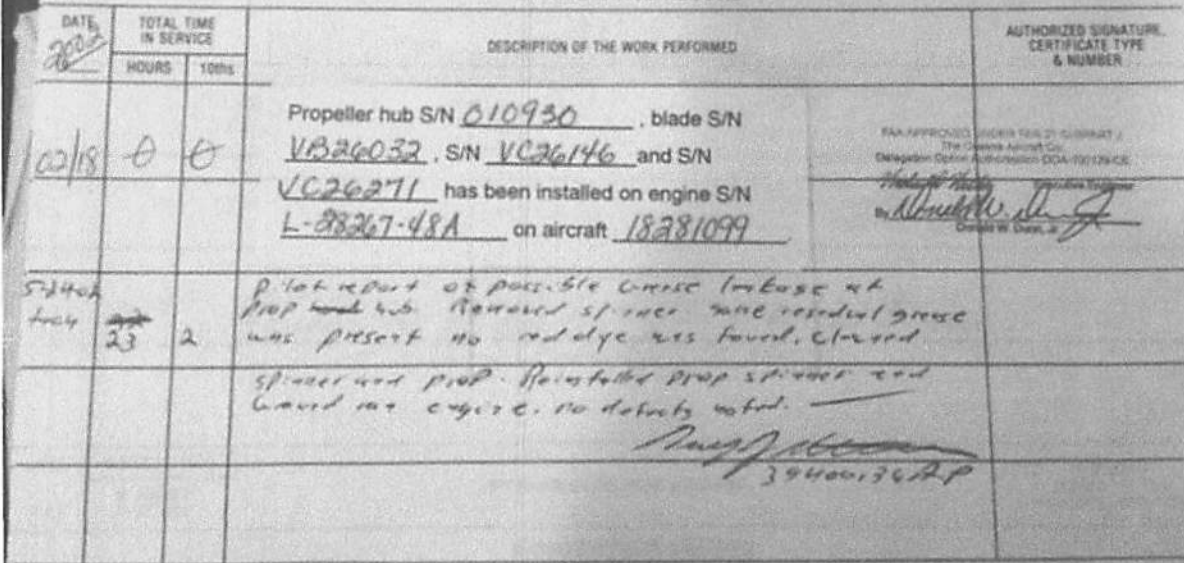 DATE
2002
TOTAL TIME
IN SERVICE
HOURS
10ths
DESCRIPTION OF THE WORK PERFORMED
AUTHORIZED SIGNATURE,
CERTIFICATE TYPE
& NUMBER
02/18 0 0
Propeller hub S/N 010930 , blade S/N
VB26032 , S/N VC26146 and S/N
VC26271 has been installed on engine S/N
L-28267-48A on aircraft 18281099
FAA APPROVED UNDER FAR 21 SUBPART J
The Cessna Aircraft Co.
Delegation Option Authorization DOA-100129-CE
Executive Engineer
By
Donald W. Dunn, Jr.
Pilot report of possible grease leakage at
prop hub. Removed spinner some residual grease
23 2 was present no red dye was found. Cleaned
spinner and prop. Reinstalled prop spinner and
ran engine. no defects noted.
A+P